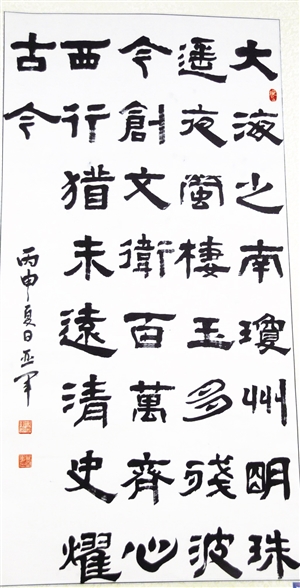 大海之南瓊州明珠
遥夜闌棲玉多殘波
今創文衛百萬齊心
西行猎未遠清史耀
古今
丙申夏日亚军